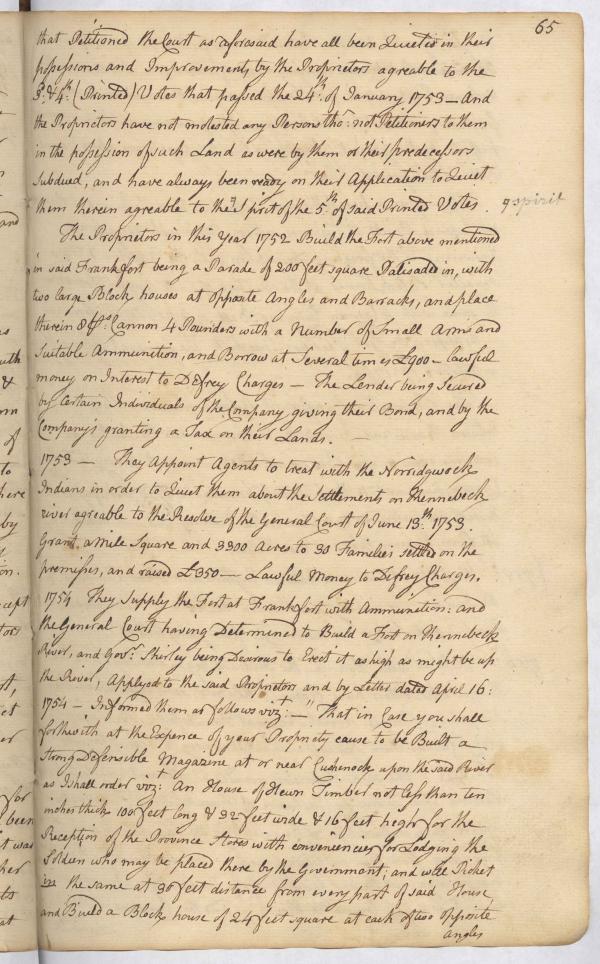 65
that Petitioned the Court as aforesaid have all been Quieted in their
possessions and Improvements, by the Proprietors agreable to the
3d. & 4th. (Printed) Votes that passed the 24th. of January 1753 — And
the Proprietors have not molested any Persons tho' not Petitioners to them
in the possession of such Land as were by them or their predecessors
subdued, and have always been ready on their Application to Quiet
them therein agreable to the of the 5th. of said Printed Votes. q spirit
The Proprietors in this Year 1752 Build the Fort above mentioned
in said Frankfort being a Parade of 200 feet square Palisaded in, with
two large Block houses at opposite Angles and Barracks, and place
therein 8 Cannon 4 Pounders with a Number of Small Arms and
Suitable Ammunition, and Borrow at Several times £900 – lawful
money on Interest to Defrey Charges — The Lender being Secured
by Certain Individuals of the Company giving their Bond, and by the
Company's granting a Tax on their Lands. —
1753 — They Appoint Agents to treat with the Norridgwock
Indians in order to Quiet them about the Settlements on Kennebeck
river agreable to the Resolve of the General Court of June 13th. 1753.
Grant a Mile Square and 3300 Acres to 30 Families settled on the
premisses, and raised £350 — Lawful Money to Defrey Charges.
1754 They Supply the Fort at Frankfort with Ammunition: and
the General Court having Determined to Build a Fort on Kennebeck
River, and Govr. Shirley being Desirous to Erect it as high as might be up
the River, Applyed to the said Proprietors and by Letter dated April 16:
1754 — Informed them as follows vizt: — "That in Case you shall
forthwith at the Expence of your Propriety cause to be Built a
Strong Defensible Magazine at or near Cushenock upon the said River
as I shall order vizt: An House of Hewn Timber not less than ten
inches thick 100 feet long & 32 feet wide & 16 feet high for the
Reception of the Province Stores with conveniencies for Lodging the
Soldiers who may be placed there by the Government; and will Picket
in the same at 30 feet distance from every part of said House,
and Build a Block house of 24 feet square at each of two opposite
Angles